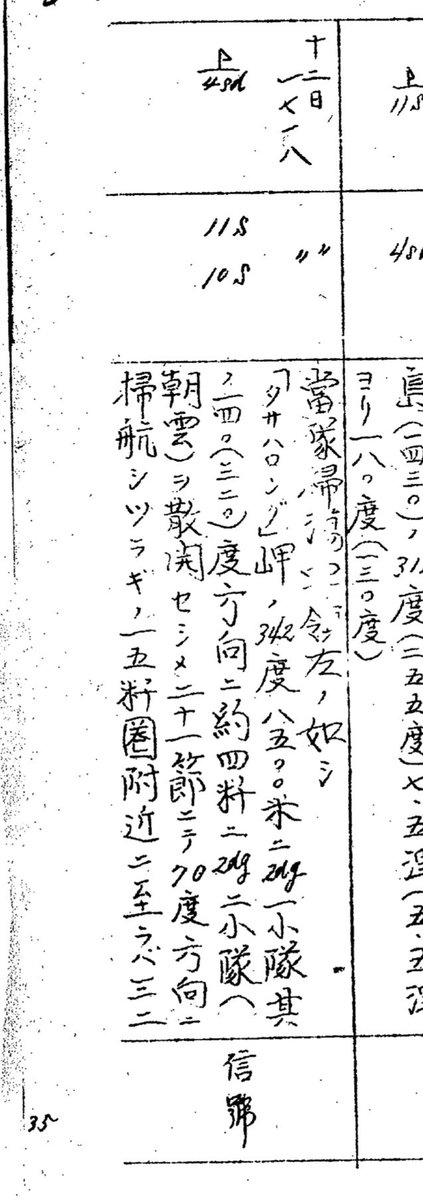 11S
4sd
島(一四三〇)ノ31度(二五五度)七、五浬(五、五浬
ヨリ一八〇度(一三〇度)
十二日
一七一八
〃〃
當隊掃 左ノ如シ
4sd
11S
10S
「タサハロング」岬ノ342度八五〇〇米ニ2dg一小隊其
ノ一四〇(三二〇)度方向ニ約四粁ニ2dg二小隊(
朝雲)ヲ散開セシメ二十一節ニテ70度方向ニ
掃航シツラギノ一五粁圏附近ニ至ラバ三二
信號
35